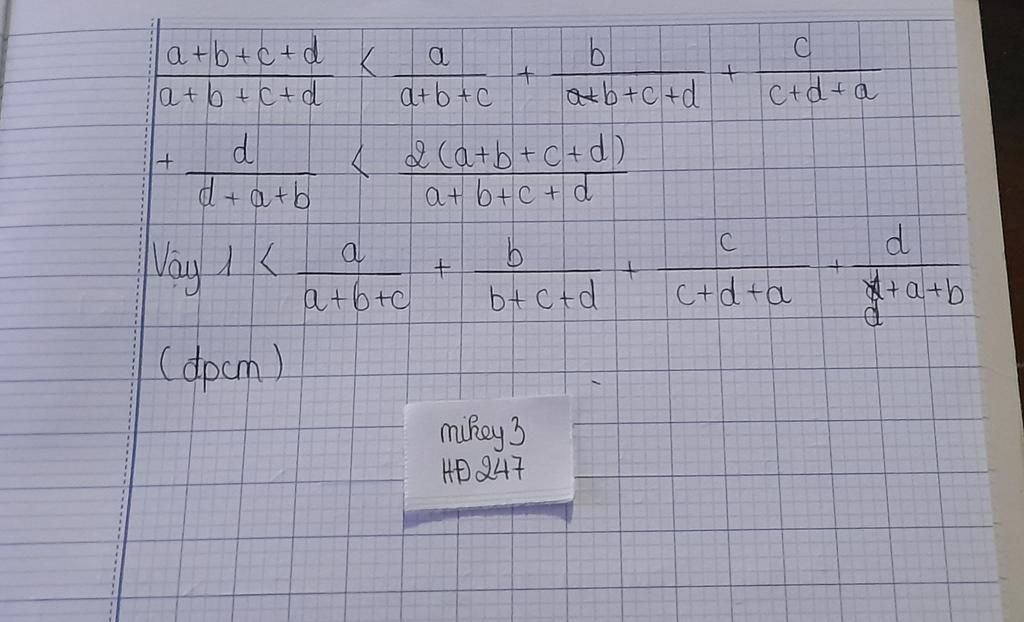 a+b+c+d/a+b+c+d < a/a+b+c + b/b+c+d + c/c+d+a
+ d/d+a+b < 2(a+b+c+d)/a+b+c+d
Vậy 1 < a/a+b+c + b/b+c+d + c/c+d+a + d/d+a+b
(đpcm)
mikey3
HĐ247